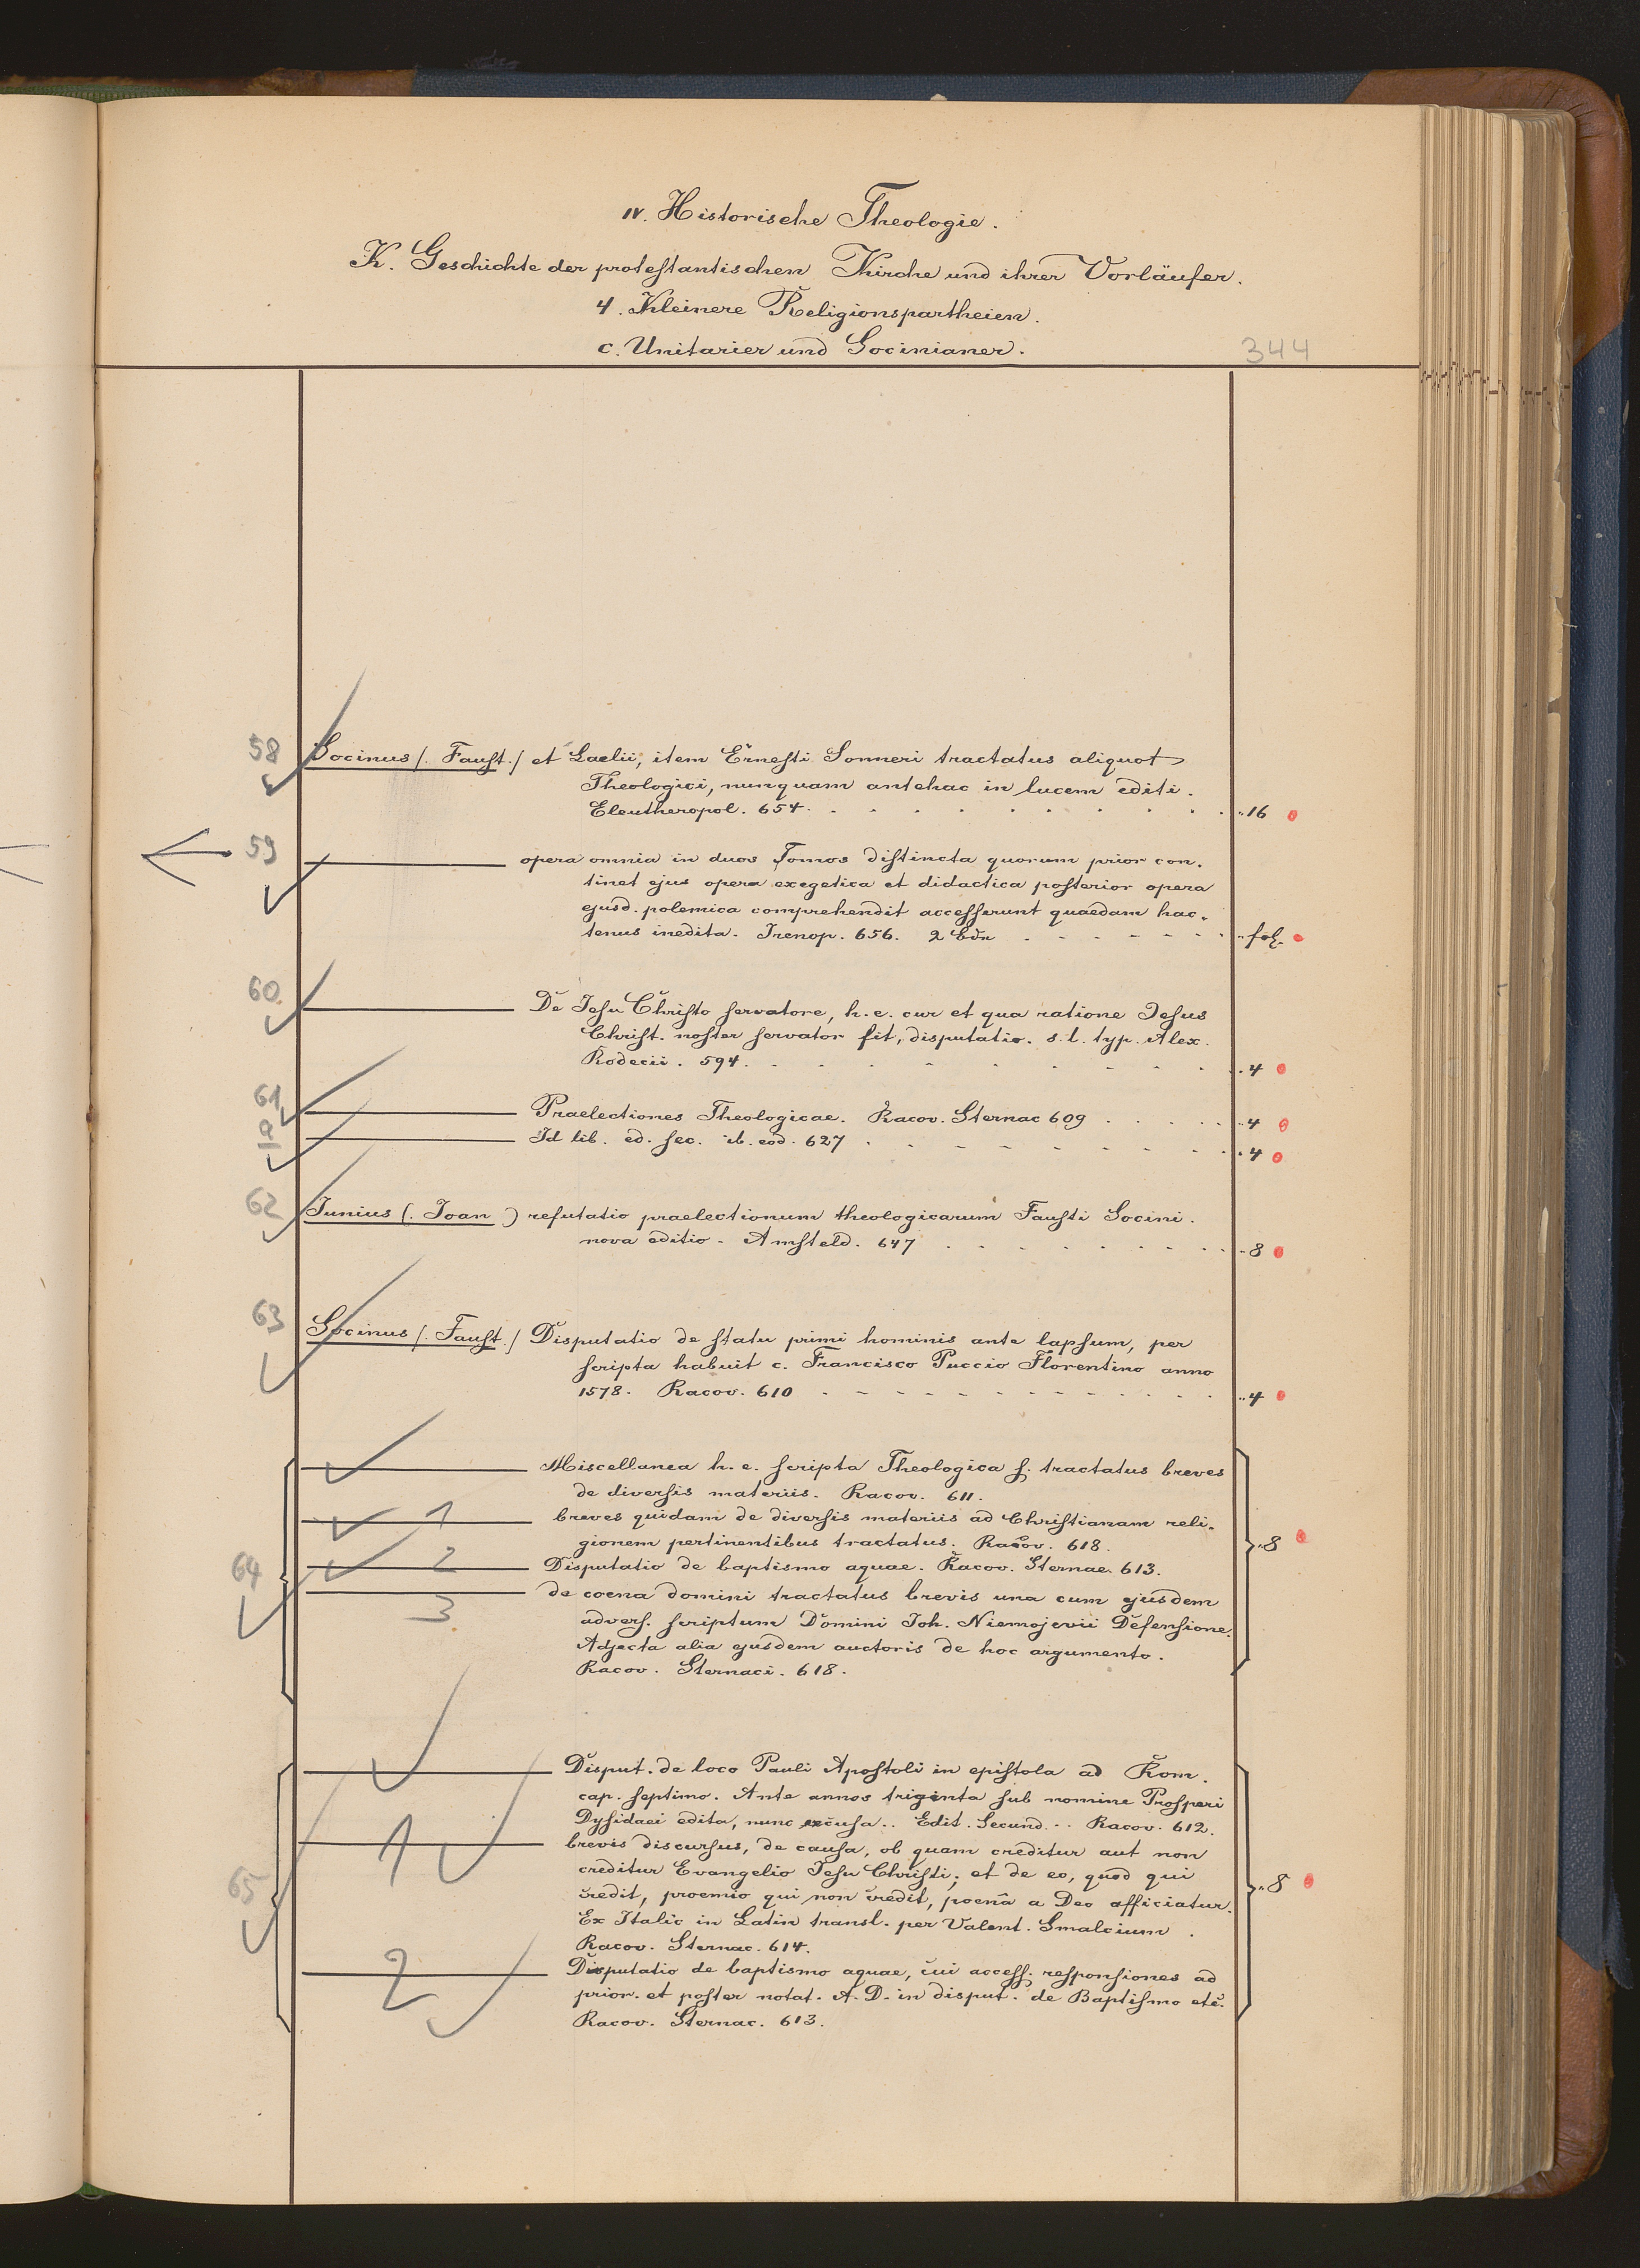 IV. Historische Theologie.
K. Geschichte der protestantischen Kirche und ihrer Vorläufer.
4. Kleinere Religionspartheien.
c. Unitarier und Socinianer.
344
58 Socinus (. Faust .) et Laelii, item Ernesti Sonneri tractatus aliquot
Theologici, nunquam antehac in lucem editi.
Eleutheropol. 654. 16
59 opera omnia in duos Tomos distincta quorum prior con-
tinet ejus opera exegetica et didactica posterior opera
ejusd. polemica comprehendit accesserunt quaedam hac-
tenus inedita. Irenop. 656. 2 Bde fol.
60 De Jesu Christo servatore, h. e. cur et qua ratione Jesus
Christ. noster servator sit, disputatio. s. l. typ. Alex.
Rodecii. 594. 4
61 Praelectiones Theologicae. Racov. Sternac 609 4
a Id lib. ed. sec. ib. eod. 627 4
62 Junius (. Joan ) refutatio praelectionum theologicarum Fausti Socini.
nova editio. Amsteld. 647 8
63 Socinus (. Faust .) Disputatio de statu primi hominis ante lapsum, per
scripta habuit c. Francisco Puccio Florentino anno
1578. Racov. 610 4
Miscellanea h. e. scripta Theologica s. tractatus breves
de diversis materiis. Racov. 611.
1 breves quidam de diversis materiis ad Christianam reli-
gionem pertinentibus tractatus. Racov. 618. 8
64 2 Disputatio de baptismo aquae. Racov. Sternac. 613.
3 de coena domini tractatus brevis una cum ejusdem
advers. scriptum Domini Joh. Niemojevii Defensione.
Adjecta alia ejusdem auctoris de hoc argumento.
Racov. Sternaci. 618.
Disput. de loco Pauli Apostoli in epistola ad Rom.
cap. septimo. Ante annos triginta sub nomine Prosperi
Dysidaei edita, nunc excusa.. Edit. Secund... Racov. 612.
1 brevis discursus, de causa, ob quam creditur aut non
creditur Evangelio Jesu Christi; et de eo, quod qui
65 credit, proemio qui non credit, poenâ a Deo afficiatur. 8
Ex Italic in Latin transl. per Valent. Smalcium.
Racov. Sternac. 614.
2 Disputatio de baptismo aquae, cui access. responsiones ad
prior. et poster notat. A. D. in disput. de Baptismo etc.
Racov. Sternac. 613.